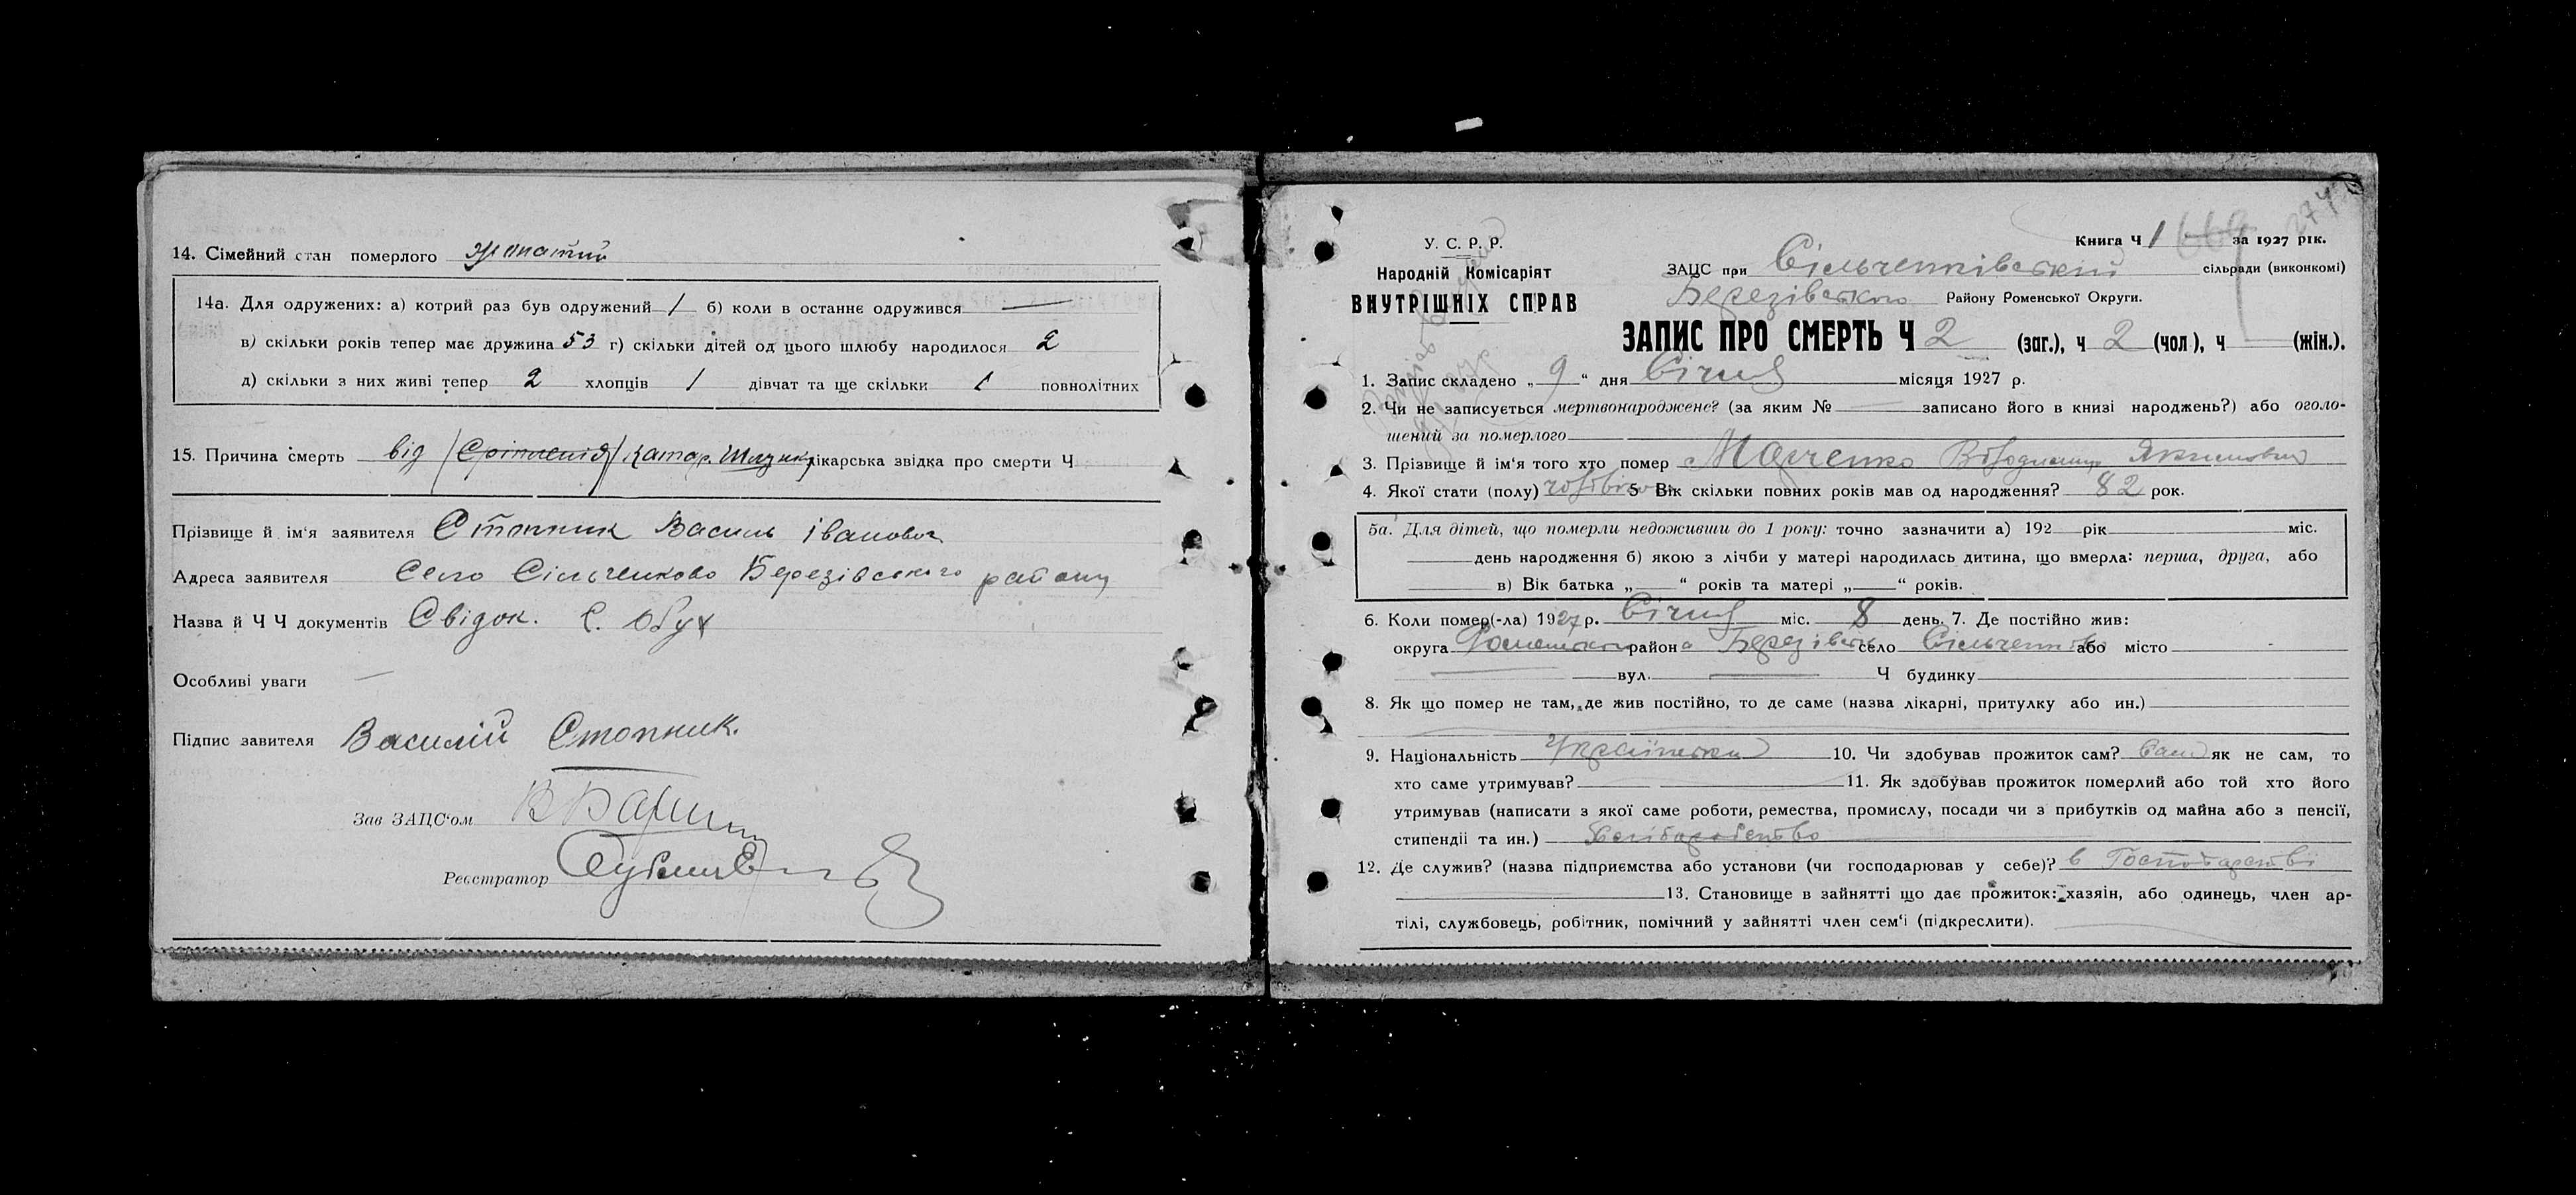 14. Сімейний стан померлого жонатий
14а. Для одружених: а) котрий раз був одружений 1 б) коли в останнє одружився —
в) скільки років тепер має дружина 53 г) скільки дітей од цього шлюбу народилося 2
д) скільки з них живі тепер 2 хлопців 1 дівчат та ще скільки 1 повнолітних
15. Причина смерть від катар. шлунку лікарська звідка про смерти Ч
Прізвище й ім'я заявителя Стопник Василь Іванович
Адреса заявителя Село Сільченково Березівського району
Назва й Ч Ч документів Свідок. С. Обух
Особливі уваги —
Підпис завителя Василий Стопник.
Зав ЗАЦС'ом
Реєстратор
Книга Ч 1 за 1927 рік.
У. С. Р. Р.
Народній Комісаріят
ВНУТРІШНІХ СПРАВ
ЗАЦС при Сільченківський сільради (виконкомі)
Березівського Району Роменської Округи.
ЗАПИС ПРО СМЕРТЬ Ч 2 (заг.), ч 2 (чол), ч (жін.).
1. Запис складено „9“ дня Січня місяця 1927 р.
2. Чи не записується мертвонароджене? (за яким № записано його в книзі народжень?) або оголо-
шений за померлого
3. Прізвище й ім'я того хто помер Марченко Володимир Якимович
4. Якої стати (полу) чоловіч 5 Вік скільки повних років мав од народження? 82 рок.
5а. Для дітей, що померли недоживши до 1 року: точно зазначити а) 192 рік міс.
день народження б) якою з лічби у матері народилась дитина, що вмерла: перша, друга, або
в) Вік батька „—“ років та матері „—“ років.
6. Коли помер(-ла) 1927 р. Січня міс. 8 день. 7. Де постійно жив:
округа Роменської района Березівськ село Сільченково або місто
вул. Ч будинку
8. Як що помер не там, де жив постійно, то де саме (назва лікарні, притулку або ин.)
9. Національність Українська 10. Чи здобував прожиток сам? Сам як не сам, то
хто саме утримував? 11. Як здобував прожиток померлий або той хто його
утримував (написати з якої саме роботи, ремества, промислу, посади чи з прибутків од майна або з пенсії,
стипендії та ин.) Хліборобство
12. Де служив? (назва підприємства або установи (чи господарював у себе)? в Господарстві
13. Становище в зайнятті що дає прожиток: хазяін, або одинець, член ар-
тілі, службовець, робітник, помічний у зайнятті член сем'і (підкреслити).